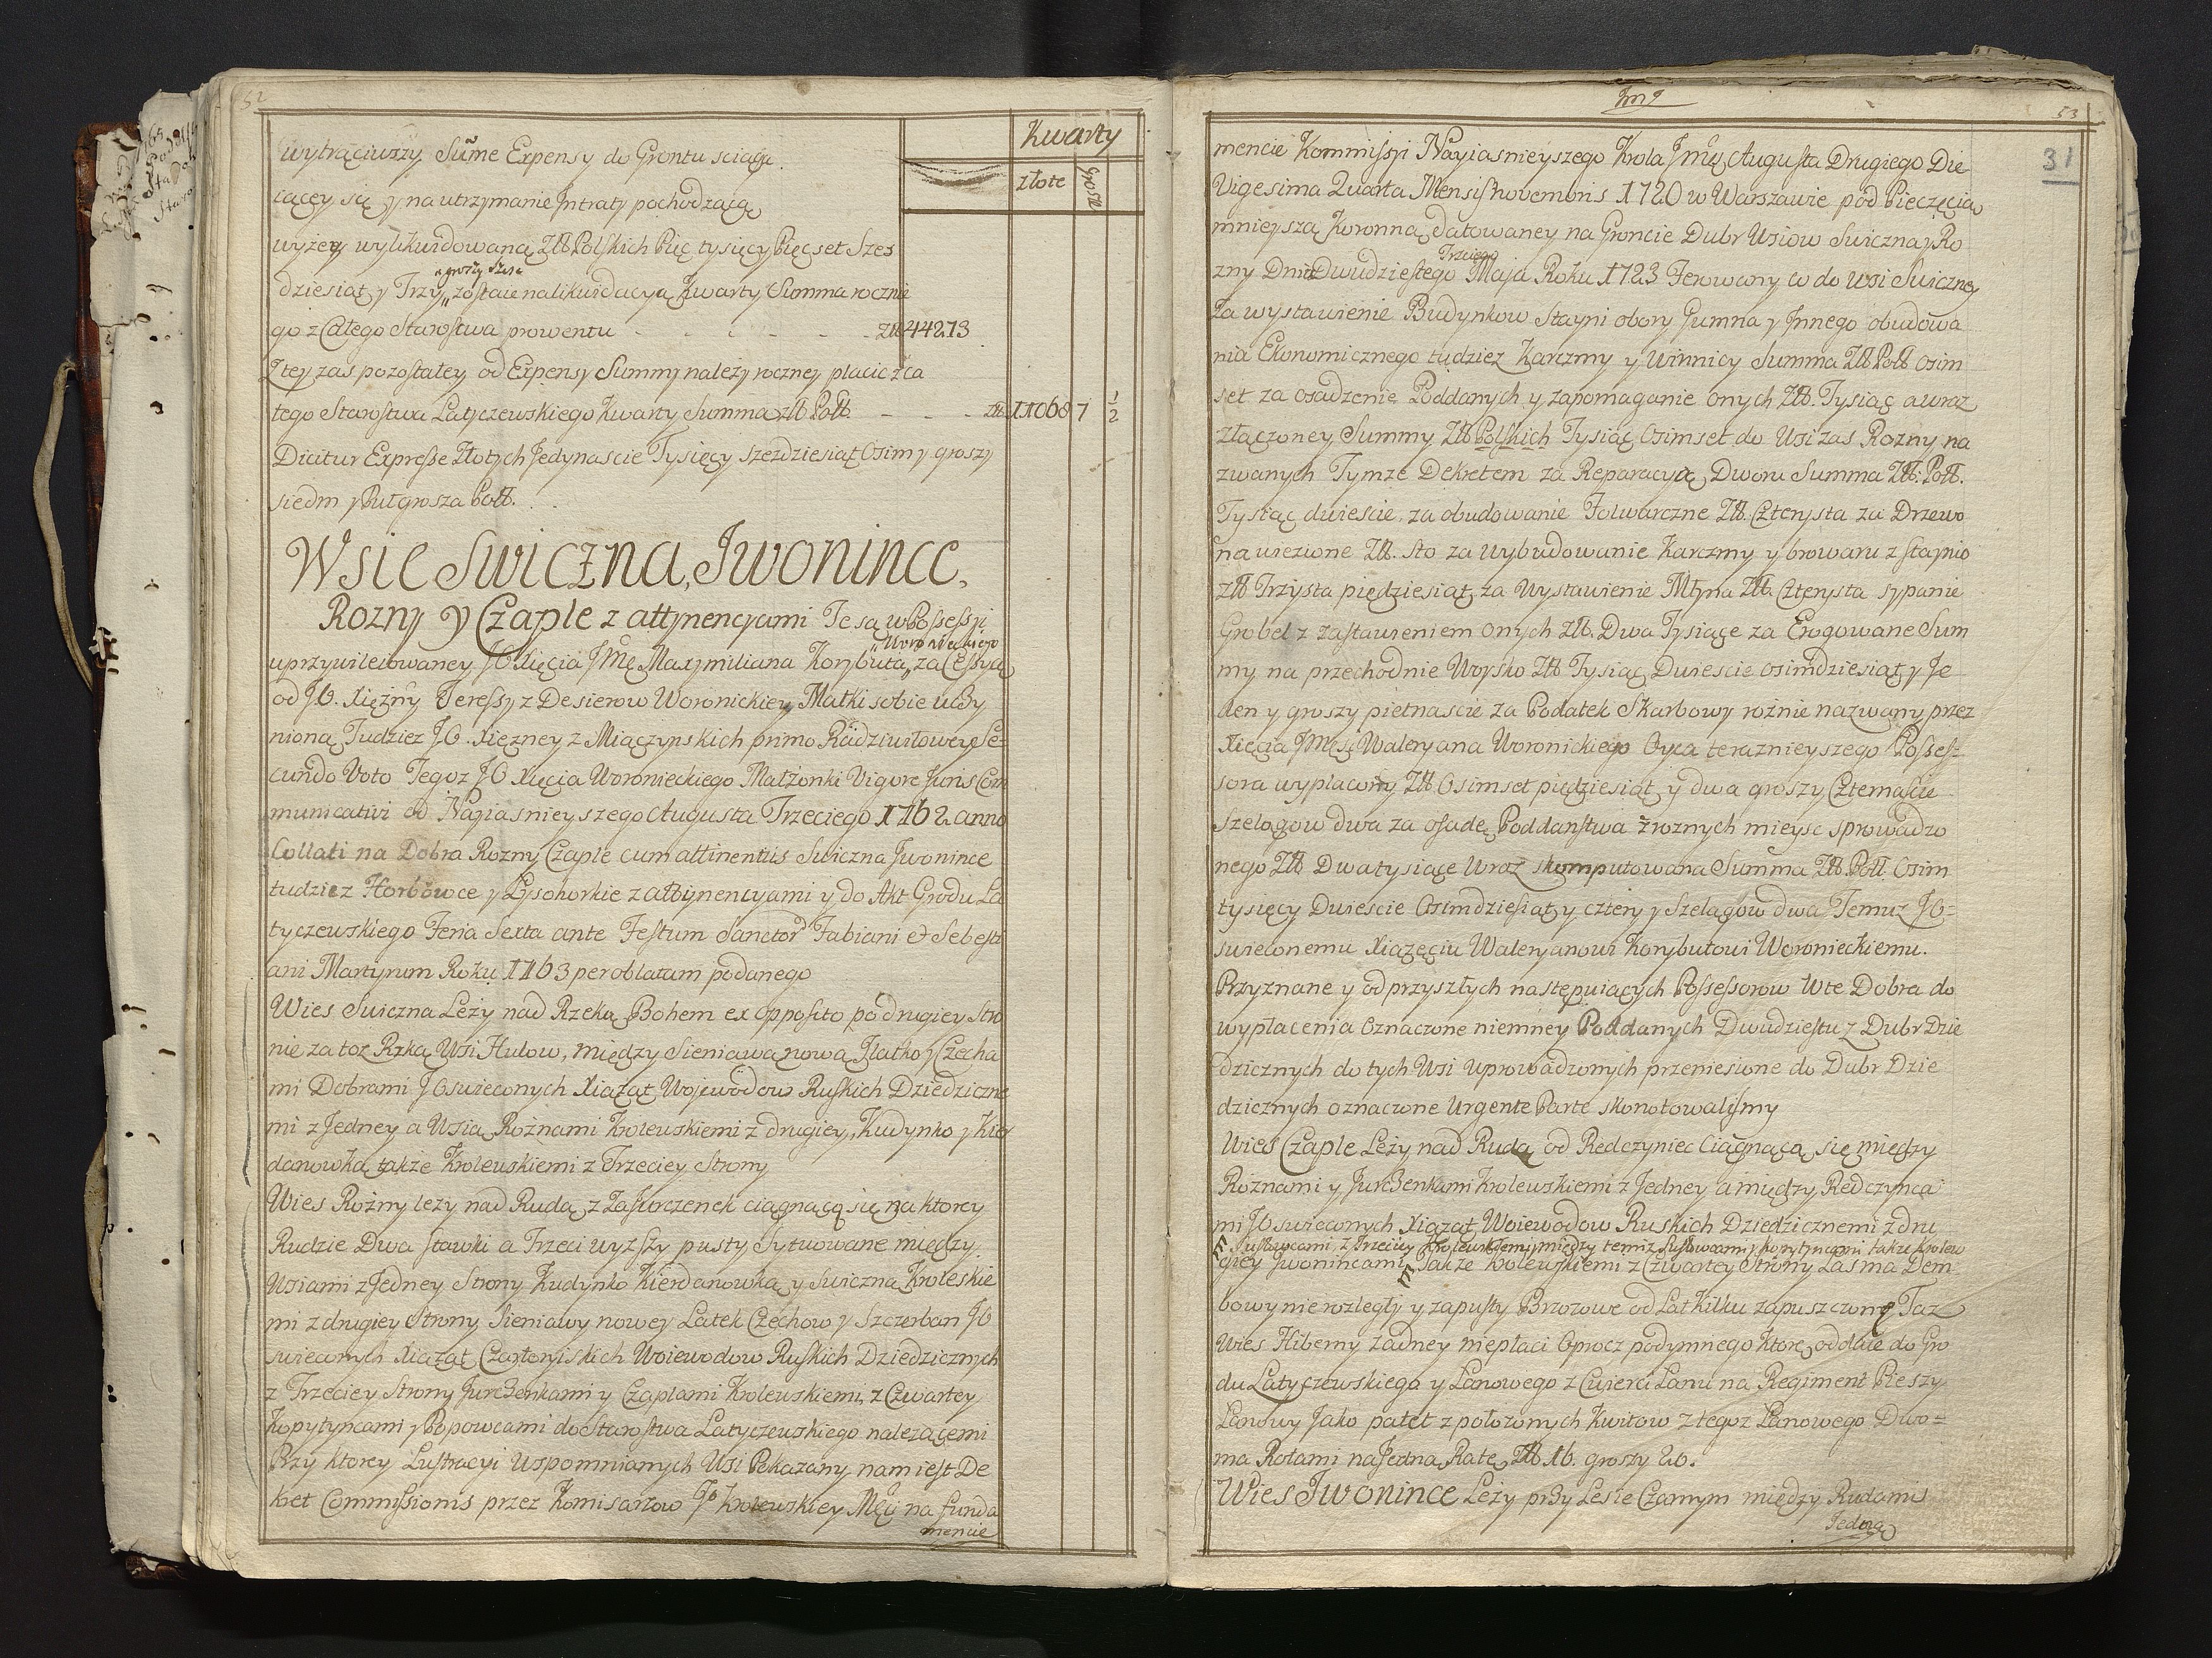 52
Kwarty
złote
Grosz
Wytrąciwszy Sume Expensy do Grontu sciąga
cącey się y na utrzymanie Intraty pochodzącą
wyżey wylikwidowaną Złł Polskich Pięć tysięcy Pięćset Szes
dziesiąt y Trzy „ zostaie na likwidacyą Kwarty Summa roczne
go z Całego Starostwa prowentu - - - - - - Złł 44273
Z tey zas pozostałey od Expensy Summy należy roczney płacic z Ca
łego Starostwa Latyczewskiego Kwarty Summa złł Poll. - - - - złł 11068 7 1/2
Dicitur Expresse Złotych Jedynascie Tysięcy szezdziesiąt Osim y groszy
siedm y Puł grosza Poll.
Wsie Swiczna, Jwonince,
Rozny y Czaple z attynencyami Te są w Possessyi
Woronieckiego
uprzywileiowaney JO Xięcia JMę Maxymiliana Korybuta „ za Cessyą
od JO. Xiężny Teressy z Desierow Woronickiey Matki sobie uczy
nioną Tudziez JO. Xiężney z Miączynskich primo Radziwiłowey Se=
cundo Voto Tegoz JO Xięcia Woronieckiego Małżonki Vigore Juris Com
municativi od Nayiasnieyszego Augusta Trzeciego 1762 anno
Collati na Dobra Rozny Czaple cum attinentiis Swiczna Jwonince
tudziez Horbowce y Łysohorkie z attynencyami y do Akt Grodu La
tyczewskiego Feria Sexta ante Festum Sanctor Fabiani et Sebesti
ani Martyrum Roku 1763 per oblatam podanego
Wies Swiczna Leży nad Rzeką Bohem ex opposito po drugiey stro
nie za toz Rzką Wsi Hulow, między Sieniawą nową Ilatko y Czecha
mi Dobrami JOswieconych Xiążąt Wojewodow Ruskich Dziedziczne
mi z Jedney a Wsią Rożnami Krolewskiemi z drugiey, Kudynko y Kier
danowką także Krolewskiemi z Trzeciey Strony
Wies Rożny leży nad Rudą z Zasiorczenek ciągnącą się na ktorey
Rudzie Dwa stawki a Trzeci wyższy pusty Sytuowane między
Wsiami z Jedney Strony Kudynko Kierdanowką y Swiczna Kroleskie
mi z drugiey Strony Sieniawy nowey Latek Czechow y Szczerban JO
swieconych Xiążąt Czartoryiskich Woiewodow Ruskich Dziedzicznych
z Trzeciey Strony Jurczenkami y Czaplami Krolewskiemi, z Czwartey
Kopytyncami y Popowcami do Starostwa Latyczewskiego należącemi
Przy ktorey Lustracyi Wspomnianych Wsi Pokazany nam iest De
kret Commissionis przez Komisarzow Jo Krolewskiey Mci na funda
mencie
53
31
mencie Kommissyi Nayiasnieyszego Krola Jmci Augusta Drugiego Die
Vigesima Quarta Mensis Novembris 1720 w Warszawie pod Pieczęcią
mnieyszą Koronną datowaney na Groncie Dubr Wsiow Swiczna y Ro
Trzeciego
zny Dnia Dwudziestego Maja Roku 1723 Ferowany co do Wsi Swiczney
Za wystawienie Budynkow Stayni obory Gumna y Innego obudowa
nia Ekonomicznego tudziez Karczmy y Winnicy Summa Złł Poll Osim
set za osadzenie Poddanych y zapomaganie onych Złł. Tysiąc a wraz
złączoney Summy Złł Polskich Tysiąc Osimset do Wsi zas Rozny na
zwanych Tymze Dekretem za Reparacyą Dworu Summa Złł. Poll.
Tysiąc dwiescie, za obudowanie Folwarczne Złł. Czterysta za Drzewo
na wiezione Złł. Sto za Wybudowanie Karczmy y browaru z staynio
Złł Trzysta piędziesiąt za Wystawienie Młyna Złł. Czterysta sypanie
Grobel z zastawieniem Onych Złł. Dwa Tysiące za Erogowane Sum
my na przechodnie Woysko Złł Tysiąc Dwiescie osimdziesiąt y Je
den y groszy pietnascie za Podatek Skarbowy rożnie nazwany przez
Xięcia JMci Waleryana Woronickiego Oyca teraznieyszego Posses=
sora wypłacony Złł Osimset piędziesiąt y dwa groszy Czternascie
szelągow dwa za osadę Poddanstwa z rożnych mieysc sprowadzo
nego Złł Dwa tysiące Wraz skomputowana Summa Złł. Poll. Osim
tysięcy Dwiescie Osimdziesiąt y cztery y Szelągow dwa Temuz JO=
swieconemu Xiążęciu Waleryanowi Korybutowi Woronieckiemu.
Przyznane y od przyszłych następuiących Possessorow Wte Dobra do
wypłacenia Oznaczone niemney Poddanych Dwudziestu z Dubr Dzie
dzicznych do tych Wsi Wprowadzonych przeniesione do Dubr Dzie
dzicznych oznaczone Urgente Parte skonotowalismy
Wies Czaple Leży nad Rudą od Redczyniec Ciągnącą się między
Rożnami y Jurczenkami Krolewskiemi z Jedney a między Redczynca
mi JOswieconych Xiążąt Woiewodow Ruskich Dziedzicznemi z dru
Susłowcami, z Trzeciey Krolewskiemi, między temiz Susłowcami y Kopytyncami także Krolew
giey Jwonincami Także Krolewskiemi z Czwartey Strony Las ma Dem
bowy nie rozległy y zapusty Brzozowe od Lat Kilku zapuszczone Taz
Wies Hiberny żadney niepłaci Oprocz podymnego ktore oddaie do Gro
du Latyczewskiego y Łanowego z Cwierci Łanu na Regiment Pieszy
Łanowy Jako patet z położonych Kwitow z tegoz Łanowego Dwo=
ma Ratami na Jedna Ratę Złł 16. groszy 20.
Wies Jwonince Leży przy Lesie Czarnym między Rudami
Jedną